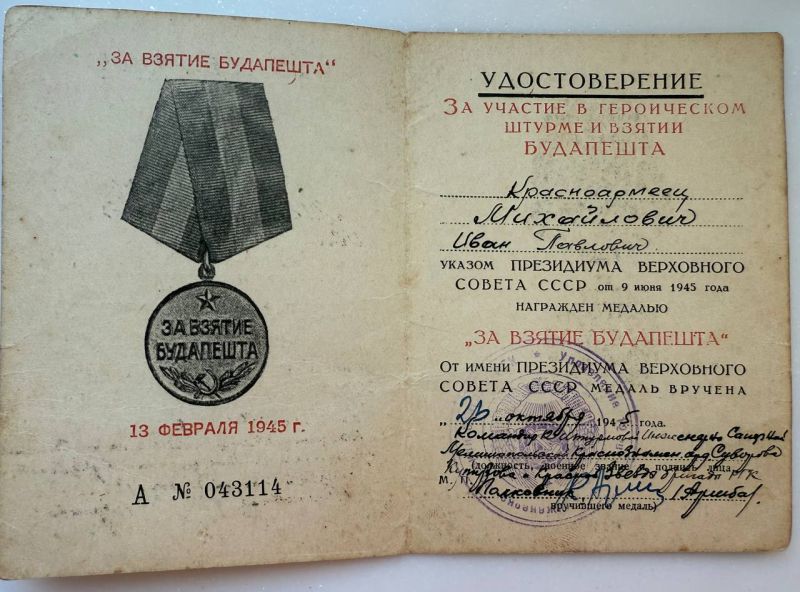 „ЗА ВЗЯТИЕ БУДАПЕШТА“
ЗА ВЗЯТИЕ
БУДАПЕШТА
13 ФЕВРАЛЯ 1945 г.
А № 043114
УДОСТОВЕРЕНИЕ
ЗА УЧАСТИЕ В ГЕРОИЧЕСКОМ
ШТУРМЕ И ВЗЯТИИ
БУДАПЕШТА
Красноармеец
Михайлович
Иван Павлович
УКАЗОМ ПРЕЗИДИУМА ВЕРХОВНОГО
СОВЕТА СССР от 9 июня 1945 года
НАГРАЖДЕН МЕДАЛЬЮ
„ЗА ВЗЯТИЕ БУДАПЕШТА“
От имени ПРЕЗИДИУМА ВЕРХОВНОГО
СОВЕТА СССР МЕДАЛЬ ВРУЧЕНА
октября 1945 года.
Командир Штурмовой
Краснознамен. орд Суворова
(должность, военное звание, подпись лица,
Кутузова и Красной Звезды бригады РГК
М. П.
Полковник
вручившего медаль)
Управление